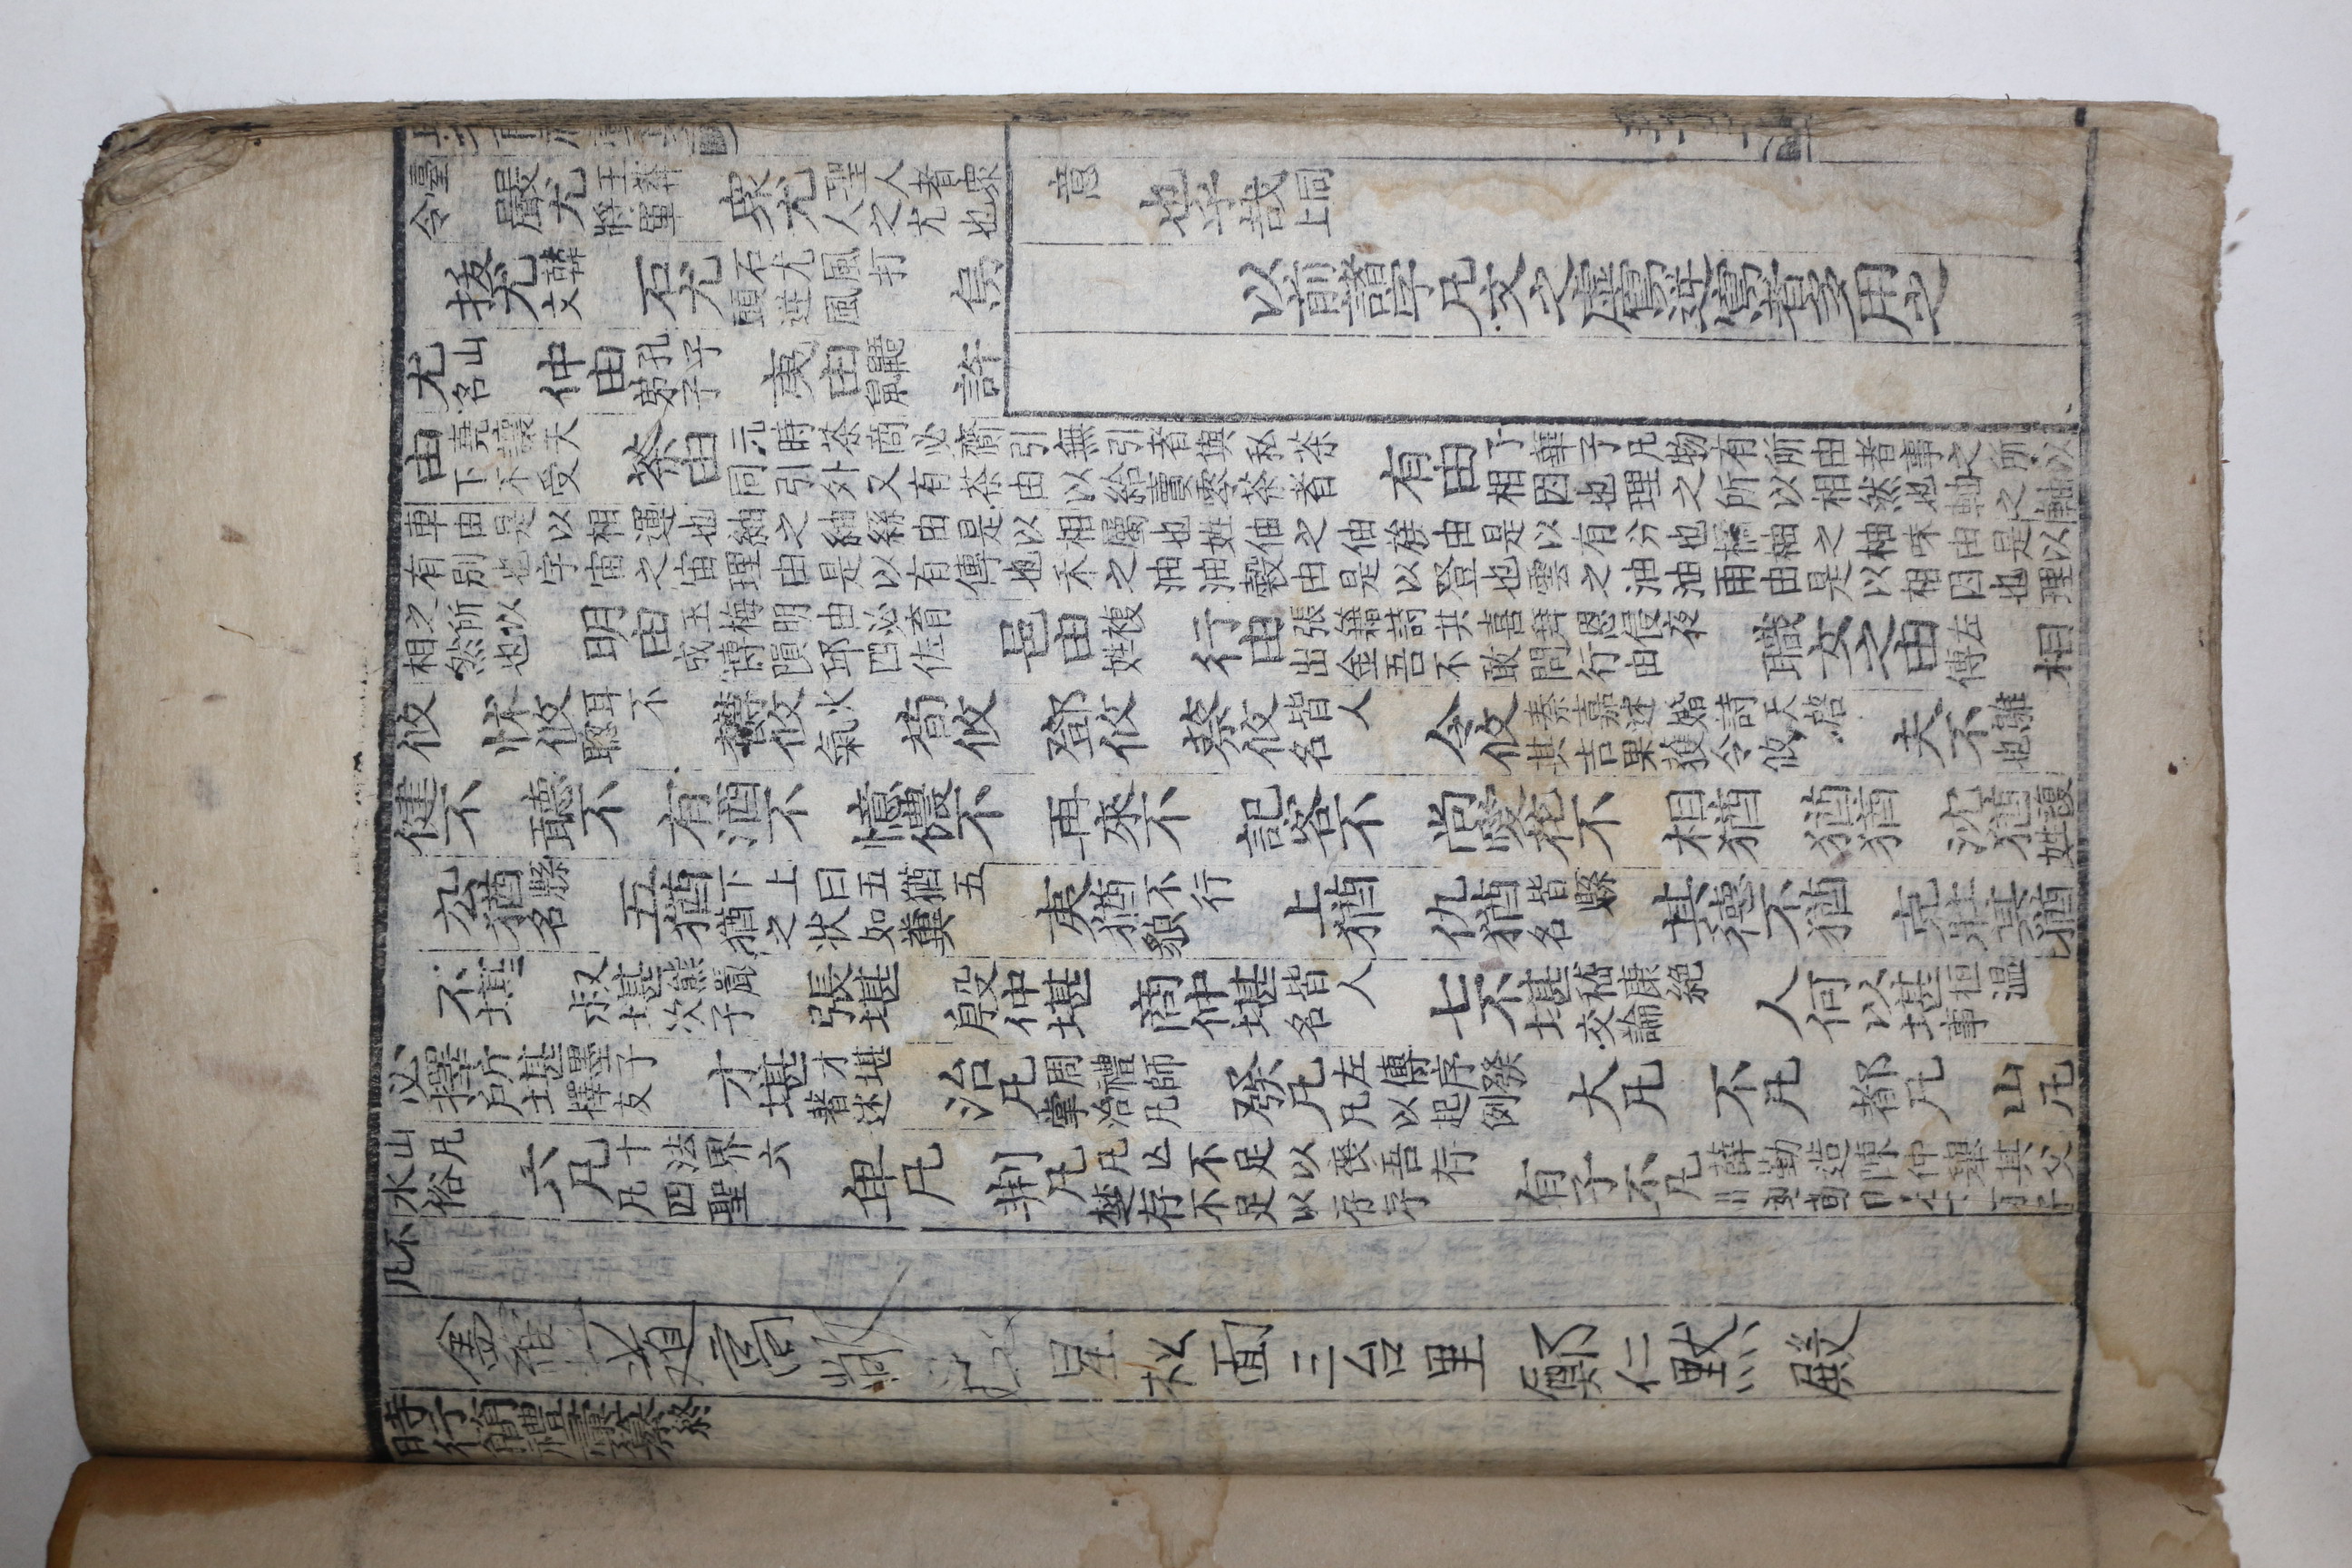 臺令 嚴尤 王莽將軍 衆尤 聖人者衆人之尤也
意 也乎哉 同上
援尤 韓文 石尤 石尤風打頭逆風
以前諸字凡文之虛寫逆寫者多用之
尤 山名 仲由 孔子弟子 夷由 鼯鼠 許
由 堯讓天下不受 茶由 元時茶商必齎引無引者與私茶同引外又有茶由以給賣零茶者 有由 子華子凡物有所由者事之所以相因也理之所以相然也軸之軸
車由是以相運也紬之紬絲由是以相屬也姓伷之伷族由是以有分也橘柚之柚味由是以有別也宇宙之宙理由是以有傳也禾之油油穀由是以登也雲之油油雨由是以相因也理
之所以相然也 明由 玉梅明由必育成博隕邱四佐 邑由 複姓 行由 張籍詩共喜拜恩侵夜出金吾不敢問行由 職女之由 左傳 相
攸 怵攸 耳不聰 欝攸 火氣 荀攸 鄧攸 蔡攸 皆人名 令攸 秦嘉述婚詩天啓其吉果獲令攸 夫不 鵻也
健不 聽不 有酒不 憶儂不 再來不 記客不 尚愛花不 相猶 猶猶 沈猶 複姓
厹猶 縣名 五猶 下上曰五猶五猶之状如糞 夷猶 不行貌 上猶 仇猶 皆縣名 其德不猶 克壯其猶
不堪 叔堪 熊嚴次子 張堪 殷仲堪 商仲堪 皆人名 七不堪 嵇康絶交論 人何以堪 桓温事
必擇所堪 墨子擇友 才堪 才堪著述 治凡 周禮師掌治凡 發凡 左傳序發凡以起例 大凡 不凡 都凡 山凡
山凡水俗 六凡 十法界六凡四聖 卑凡 荆凡 凡亡不足以喪吾存楚存不足以存存 有子不凡 薛勤造陳仲舉其父
不凡
道高敞 星松面三台里鄭仁黙殿
時行簡禮彙纂終